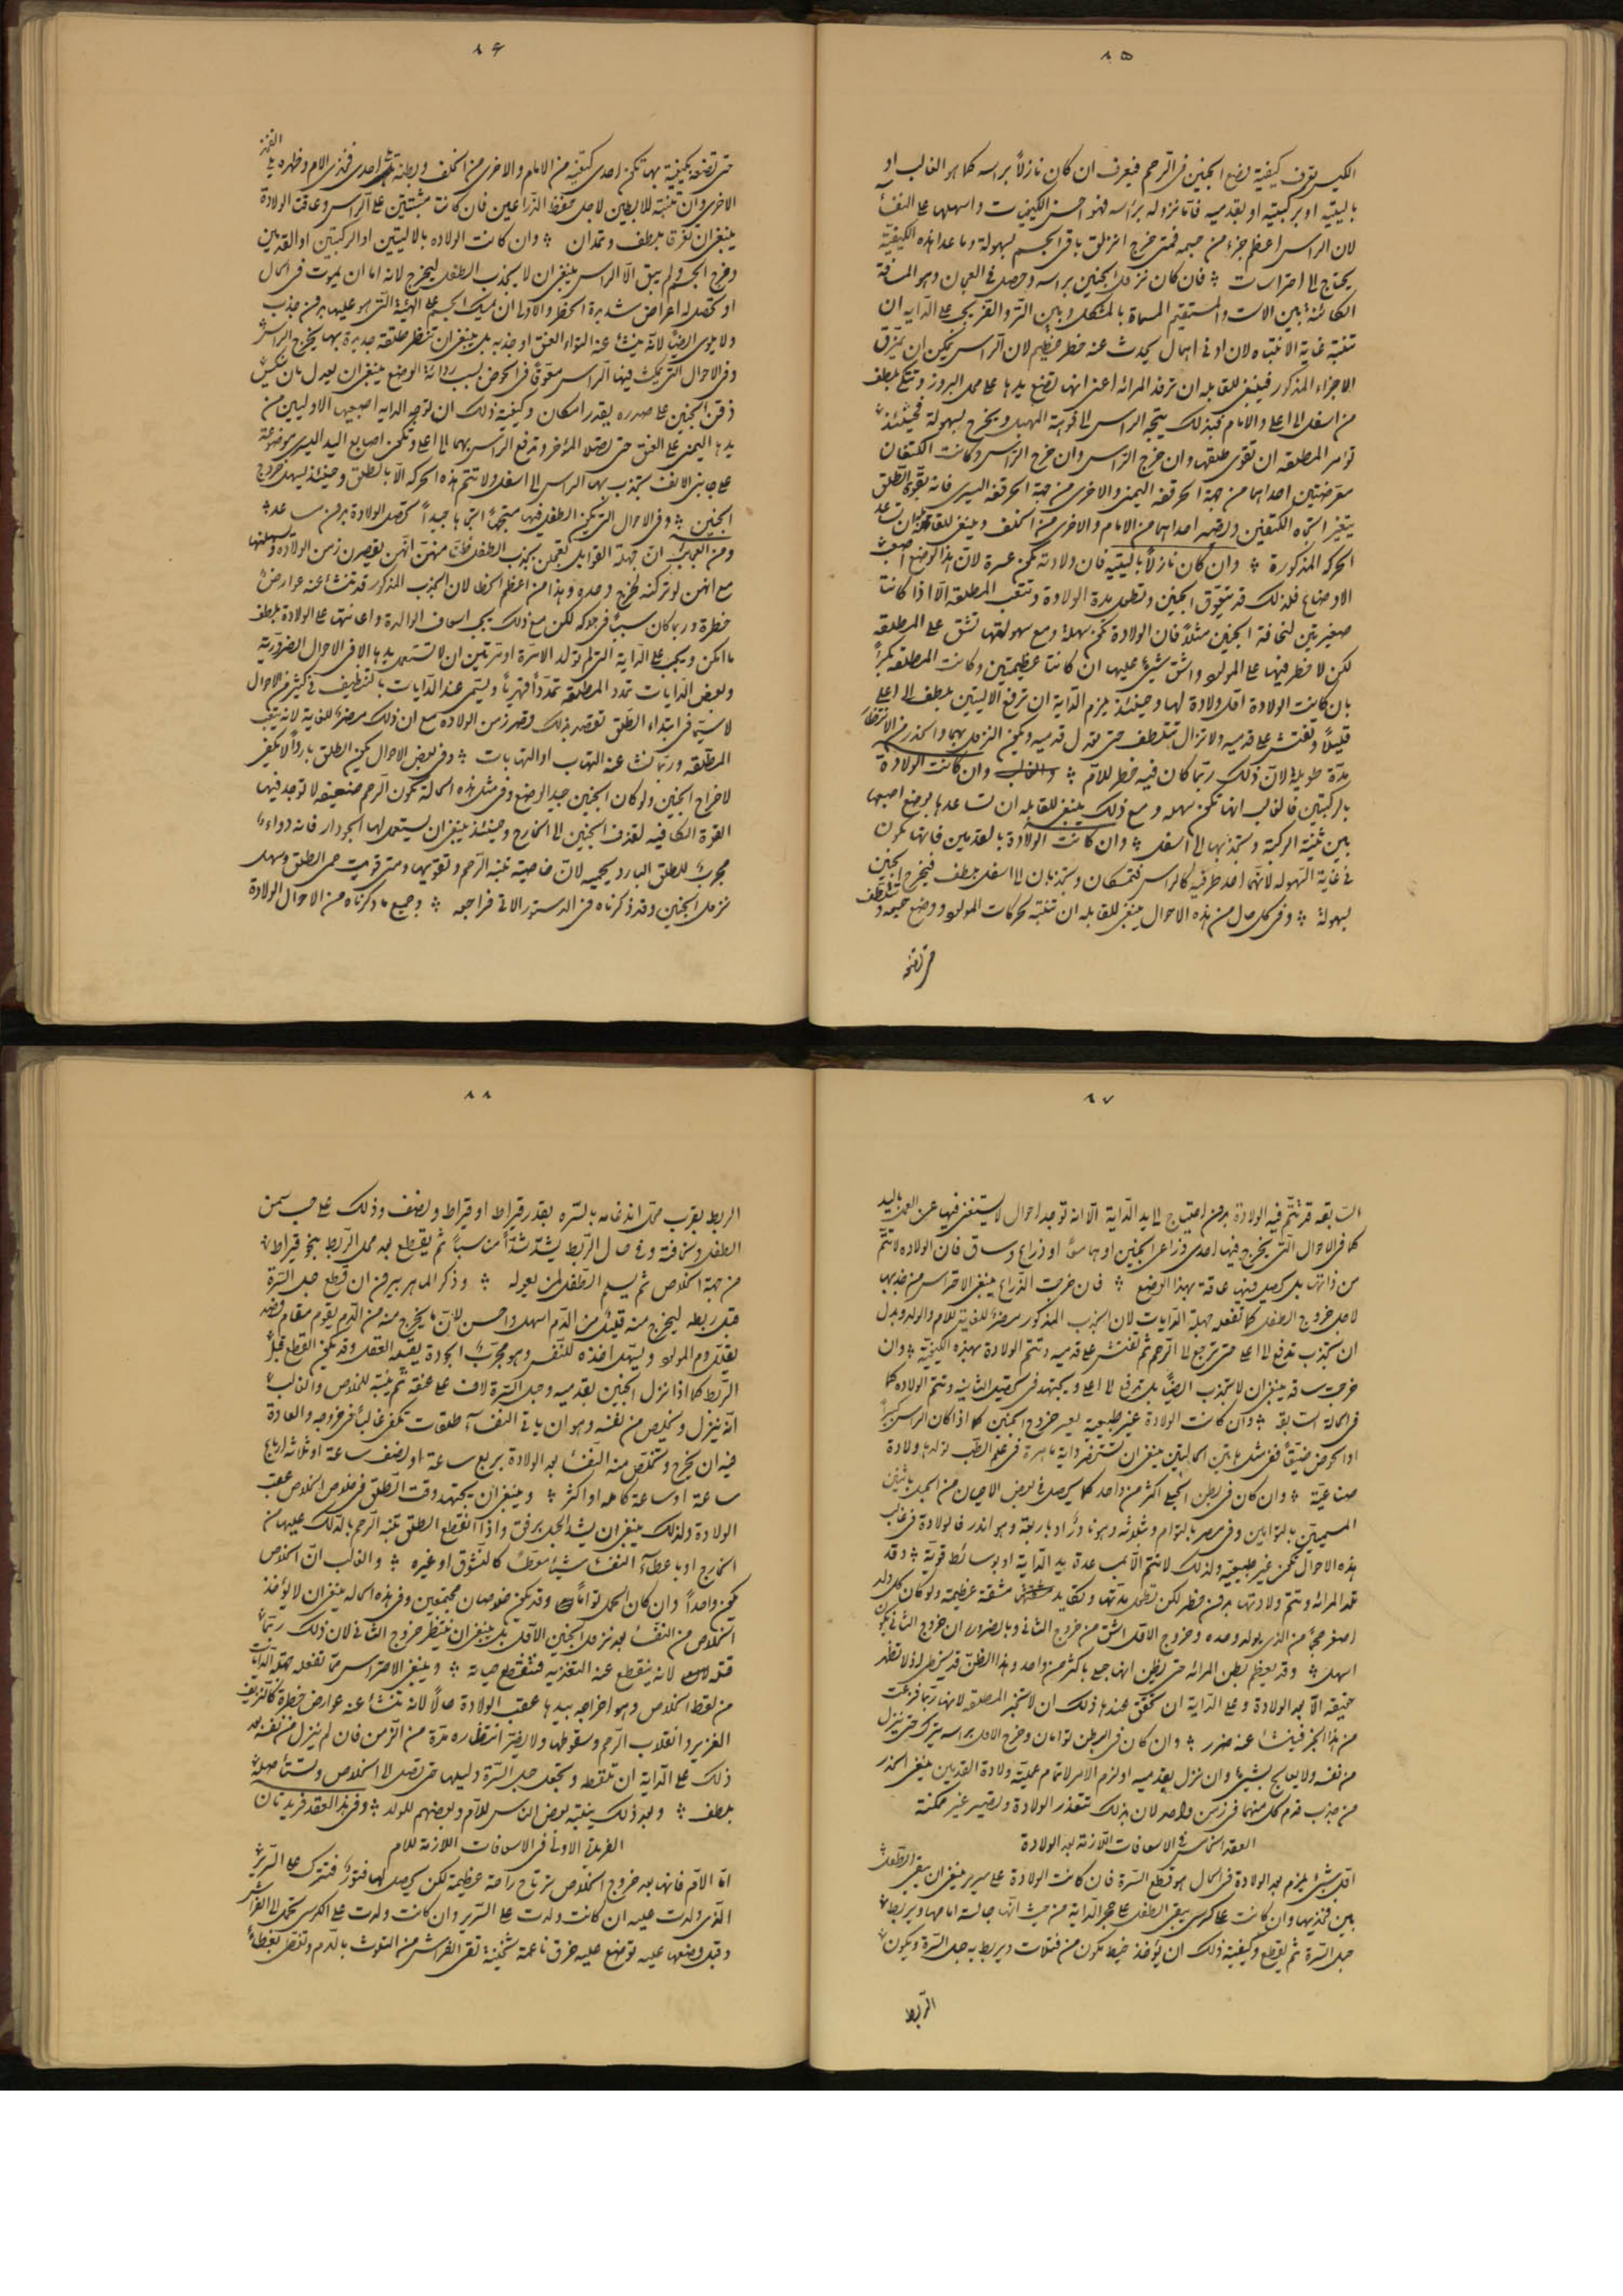 ٨٥
الكيس يعرف كيفية وضع الجنين فى الرحم فيعرف ان كان نازلاً براسه كما هو الغالب او
باليتيه او بركبتيه او بقدميه فاما نزوله براسه فهو احسن الكيفيات واسهلها على النفسآ
لان الراس اعظم جزء من جسمه فمتى خرج انزلق باقى الجسم بسهولة وما عدا هذه الكيفية
يحتاج الى احتراسات فان كان نزول الجنين براسه وحصل فى العجان وهو المسافة
الكائنة بين الاست والمستقيم المسماة بالمشكل وبين الفرج يجب على الداية ان
تنتبه غاية الانتباه لان ادنى اهمال يحدث عنه خطر عظيم لان الراس يمكن ان يمزق
الاجزاء المذكورة فينبغى للقابله ان ترفد المرائه اعنى انها تضع يدها على محل البروز وتتكى بلطف
من اسفل الى اعلى والامام فبذلك يتجه الراس الى فوهة المهبل ويخرج بسهولة فحينئذ
تؤمر المطلقه ان تقوى طلقها وان خرج الراس وكانت الكتفان
معترضتين احداهما من جهة الحرقفه اليمنى والاخرى من جهة الحرقفه اليسرى فانه بقوة الطلق
يتغير اتجاه الكتفين وتصير احداهما من الامام والاخرى من الخلف وينبغى للقابله ان تساعد
الحركه المذكورة وان كان نازلاً باليتيه فان ولادته تكون عسرة لان هذا الوضع اصعب
الاوضاع فلذلك قد يتعوق الجنين وتطول مدة الولادة وتتعب المطلقه الا اذا كانتا
صغيرتين لنحافة الجنين مثلاً فان الولادة تكون سهلة ومع سهولتها تشق على المطلقه
لكن لا خطر فيها على المولود واشق شيئ عليها ان كانتا عظيمتين وكانت المطلقه بكراً
بان كانت الولادة اول ولادة لها وحينئذ يلزم الداية ان ترفع الاليتين بلطف الى اعلى
قليلاً وتفتش على قدميه ولا تزال تتلطف حتى تنزل قدميه ويكون النزول بهما والحذر من الانتظار
مدة طويلة لان ذلك ربما كان فيه خطر للام وان كانت الولادة
بالركبتين فالغالب انها تكون سهله ومع ذلك ينبغى للقابله ان تساعدها بوضع اصبعها
بين ثنية الركبة وتجذبها الى اسفل وان كانت الولادة بالقدمين فانها تكون
فى غاية السهوله لانهما احد طرفيه كالراس فتمسكان وتجذبان الى اسفل بلطف فيخرج الجنين
بسهولة وفى كل حال من هذه الاحوال ينبغى للقابله ان تنتبه لحركات المولود ووضع جسمه وتتلطف
حتى تضعه
٨٦
حتى تضعه بكيفية بها تكون احدى كتفيه من الامام والاخرى من الخلف وبطنه تلى احدى فخذى الام وظهره يلى الفخذ
الاخرى وان تنتبه للابطين لاجل حفظ الذراعين فان كانت مثبتتين على الراس وعاقت الولادة
ينبغى ان تفرقا بلطف وتمدان وان كانت الولاده بالاليتين او الركبتين او القدمين
وخرج الجسم ولم يبق الا الراس ينبغى ان لا يجذب الطفل ليخرج لانه اما ان يموت فى الحال
او تحصل له اعراض شديدة الخطر والاولى ان يمسك الجسم على الهيئة التى هو عليها بدون جذب
ولا يلوى ايضاً لانه ينشاء عنه التواء العنق او جذبه بل ينبغى ان تنتظر طلقة جديدة بها يخرج الراس
وفى الاحوال التى يمكث فيها الراس معوقاً فى الحوض بسبب ردائة الوضع ينبغى ان يعدل بان تنكس
ذقن الجنين على صدره بقدر الامكان وكيفية ذلك ان توجه الدايه اصبعيها الاوليين من
يدها اليمنى على العنق حتى تصل المؤخر وتدفع الراس بهما الى اعلى وتكون اصابع اليد اليسرى موضوعة
على جانبى الانف تجذب بها الراس الى اسفل ولا تتم هذه الحركه الا بالطلق وحينئذ يسهل خروج
الجنين وفى الاحوال التى يكون الطفل فيها متجهاً اتجاهاً جيداً تحصل الولادة بدون مساعده
ومن العجائب ان جهلة القوابل تعجلن بجذب الطفل ظناً منهن انهن يقصرن زمن الولاده ويسهلنها
مع انهن لو تركنه لخرج وحده وهذا من اعظم الخطاء لان الجذب المذكور قد تنشاء عنه عوارض
خطرة وربما كان سبباً فى هلاكه لكن مع ذلك يجب اسعاف الوالدة واعانتها على الولادة بلطف
ما امكن ويجب على الداية التى لم تولد الا مرة او مرتين ان لا تستعمل يدها الا فى الاحوال الضرورية
وبعض الدايات تمدد المطلقه تمدداً قهرياً ويسمى عند الدايات بالتنظيف فى كثير من الاحوال
لا سيما فى ابتداء الطلق تقصد بذلك قصر زمن الولاده مع ان ذلك مضر للغاية لانه يتعب
المطلقه وربما نشاء عنه التهاب او التهابات وفى بعض الاحوال يكون الطلق بارداً لا يكفى
لاخراج الجنين ولو كان الجنين جيد الوضع وفى مثل هذه الحالة تكون الرحم ضعيفه لا توجد فيها
القوة الكافيه لقذف الجنين الى الخارج وحينئذ ينبغى ان يستعمل لها الجودار فانه دواء
مجرب للطلق البارد يحييه لان خاصيته تنبه الرحم وتقويها ومتى قويت حمى الطلق وسهل
نزول الجنين وقد ذكرناه فى الدستور الاتى فراجعه وجميع ما ذكرناه من الاحوال الولادة
٨٧
السابقه قد تتم فيه الولادة بدون احتياج الى يد الداية الا انه توجد احوال لا يستغنى فيها عن العمل باليد
كما فى الاحوال التى يخرج فيها احدى ذراعى الجنين او هما معاً او ذراع وساق فان الولاده لا تتم
من ذاتها بل يحصل فيها عاقة بهذا الوضع فان خرجت الذراع ينبغى الاحتراس من جذبها
لاجل خروج الطفل كما تفعله جهلة الدايات لان الجذب المذكور مضر للغاية للام والولد وبدل
ان تجذب تدفع الى اعلى حتى ترجع الى الرحم ثم تفتش على قدميه وتتم الولادة بهذه الكيفية وان
خرجت ساقه ينبغى ان لا تجذب ايضاً بل ترفع الى اعلى ويجتهد فى تحصيل الثانيه وتتم الولاده كما
فى الحالة السابقه وان كانت الولادة غير طبيعية بعسر خروج الجنين كما اذا كان الراس كبيراً
او الحوض ضيقاً ففى مثل هاتين الحالتين ينبغى ان تستحضر داية ماهرة فى علم الطب تولدها ولادة
صناعية وان كان فى بطن الحبلى اكثر من واحد كما يحصل فى بعض الاحيان من الحبل باثنين
المسميين بالتوامين وفى مصر بالتوام وبثلاثه وهو نادر او باربعة وهو اندر فالولادة فى غالب
هذه الاحوال تكون غير طبيعيه ولذلك لا تتم الا بمساعدة يد الداية او بوسائط قوية وقد
تلد المرائه وتتم ولادتها بدون خطر لكن تطول مدتها وتكابد مشقة عظيمة ولو كان كل ولد
اصغر حجماً من الذى يولد وحده وخروج الاول اشق من خروج الثانى وبالضرورة ان خروج الثانى يكون
اسهل وقد يعظم بطن المرائه حتى يظن انها حبلى باكثر من واحد وهذا الظن قد يخطى ولا تظهر
حقيقته الا بعد الولادة وعلى الداية ان تحقق عندها ذلك ان لا تخبر المطلقه لانها ربما فزعت
من هذا الخبر فينشاء عنه ضرر وان كان فى البطن توامان وخرج الاول براسه يترك حتى ينزل
من نفسه ولا يعالج بشيئ وان نزل بقدميه او لزم الامر لاتمام عملية ولادة القدمين ينبغى الحذر
من جذب قدم كل منهما فى زمن واحد لان بذلك تتعذر الولادة وتصير غير ممكنة
العقد الخامس فى الاسعافات اللازمة بعد الولادة
اول شيئ يلزم بعد الولادة فى الحال هو قطع السرة فان كانت الولادة على سرير ينبغى ان يبقى الطفل
بين فخذيها وان كانت على كرسى يبقى الطفل على حجر الداية من حيث انها جالسة امامها ويربط
حبل السرة ثم يقطع وكيفية ذلك ان يؤخذ خيط يكون من فتلات ويربط به حبل السرة ويكون
الربط
٨٨
الربط بقرب محل اندغامه بالسره بقدر قيراط او قيراط ونصف وذلك على حسب سمن
الطفل ونحافته وفى حال الربط يشد شداً مناسباً ثم يقطع بعد محل الربط بنحو قيراط
من جهة الخلاص ثم يسلم الطفل لمن يعوله وذكر الماهر بيرون ان قطع حبل السرة
قبل ربطه ليخرج منه قليل من الدم اسهل واحسن لان ما يخرج منه من الدم يقوم مقام فصد
يقلل دم المولود ويسهل اخذه للنفس وهو مجرب الجودة يقبله العقل وقد يكون القطع قبل
الربط كما اذا نزل الجنين بقدميه وحبل السرة لاف على عنقه ثم ينتبه للخلاص والغالب
انه ينزل ويخلص من نفسه وهو ان ياتى النفسآ طلقات تكفى غالباً فى خروجه والعادة
فيه ان يخرج وتتخلص منه النفسآ بعد الولادة بربع ساعة او نصف ساعة او ثلاثه ارباع
ساعة او ساعة كامله او اكثر وينبغى ان يجتهد وقت الطلق فى خلوص الخلاص عقب
الولادة ولذلك ينبغى ان يشد الحبل برفق واذا انقطع الطلق تنبه الرحم بالدلك عليها من
الخارج او باعطاء النفسآ شيئاً معطساً كالنشوق او غيره والغالب ان الخلاص
يكون واحداً وان كان الحمل تواماً وقد يكون خلوصان مجتمعين وفى هذه الحاله ينبغى ان لا يؤخذ
الخلاص من النفسآ بعد نزول الجنين الاول بل ينبغى ان ينتظر خروج الثانى لان ذلك ربما
قتله لانه ينقطع عنه التغذيه فتنقطع حياته وينبغى الاحتراس مما تفعله جهلة الدايات
من لقط الخلاص وهو اخراجه بيدها عقب الولادة حالاً لانه تنشاء عنه عوارض خطرة كالنزيف
الغزير وانقلاب الرحم وسقوطها ولا يضر انتظاره مدة من الزمن فان لم ينزل من نفسه بعد
ذلك على الداية ان تلقطه وتجعل حبل السرة دليلها حتى تصل الى الخلاص وتستاصله
بلطف وبعد ذلك ينتبه بعض الناس للام وبعضهم للولد وفى هذا العقد فريدتان
الفريدة الاولى فى الاسعافات اللازمة للام
اما الام فانها بعد خروج الخلاص ترتاح راحة عظيمة لكن يحصل لها فتور فتترك على السرير
الذى ولدت عليه ان كانت ولدت على السرير وان كانت ولدت على الكرسى تحمل الى الفراش
وقبل وضعها عليه توضع عليه خرق ناعمة ثخينة تقى الفراش من التلوث بالدم وتغطى بغطاء